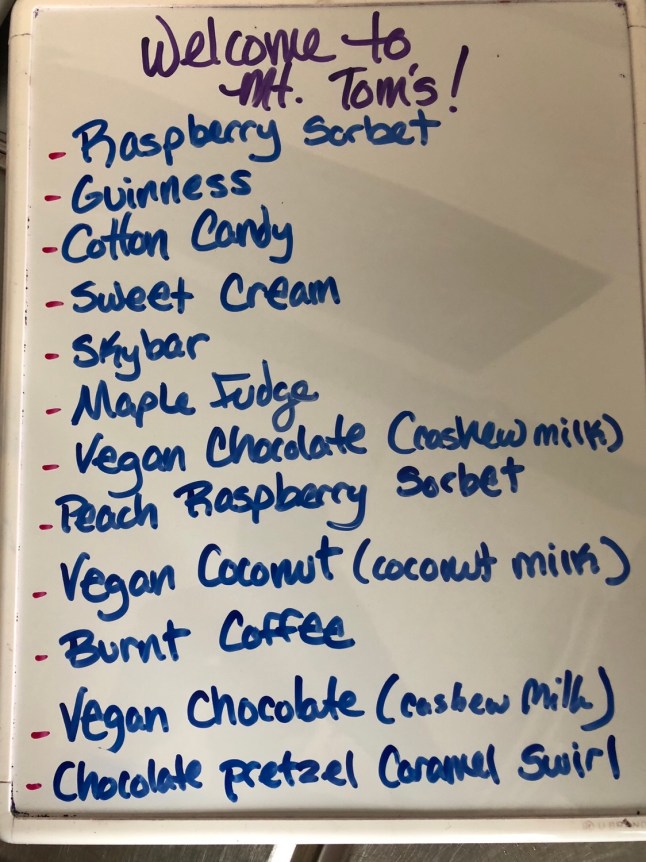 Welcome to
Mt. Tom's!
- Raspberry Sorbet
- Guinness
- Cotton Candy
- Sweet Cream
- Skybar
- Maple Fudge
- Vegan Chocolate (cashew milk)
- Peach Raspberry Sorbet
- Vegan Coconut (coconut milk)
- Burnt Coffee
- Vegan Chocolate (cashew milk)
- Chocolate pretzel Caramel Swirl